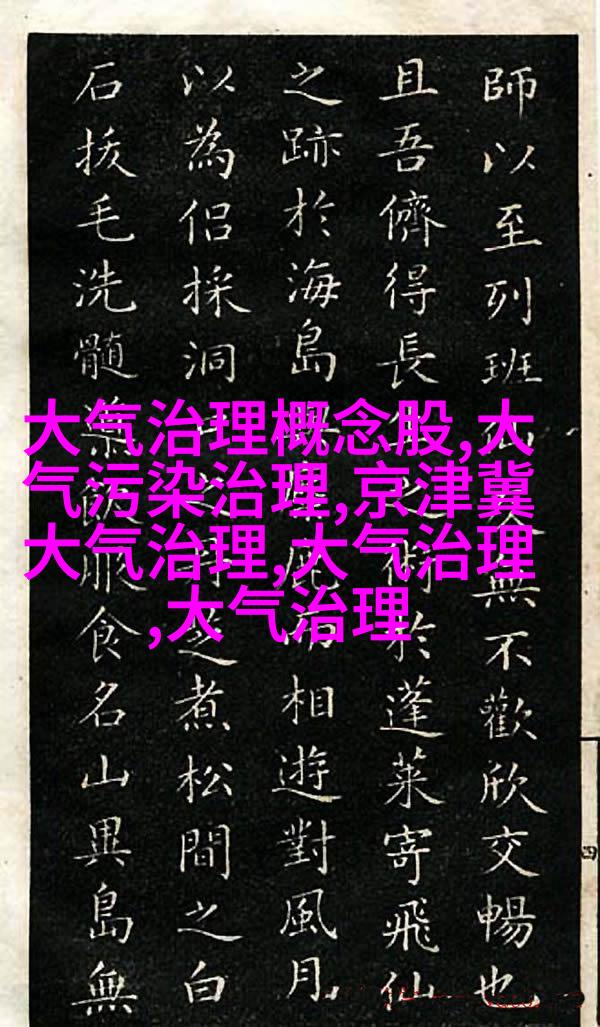 大气治理概念股,大
气污染治理,京津冀
大气治理,大气治理
,大气治理
師以至列班無不歡欣交暢也
且吾儕得長術於蓬萊寄飛仙
之跡於海島而相遊對風月
以為侶採洞芝煮松間之白
石拔毛洗髓服食名山異島無